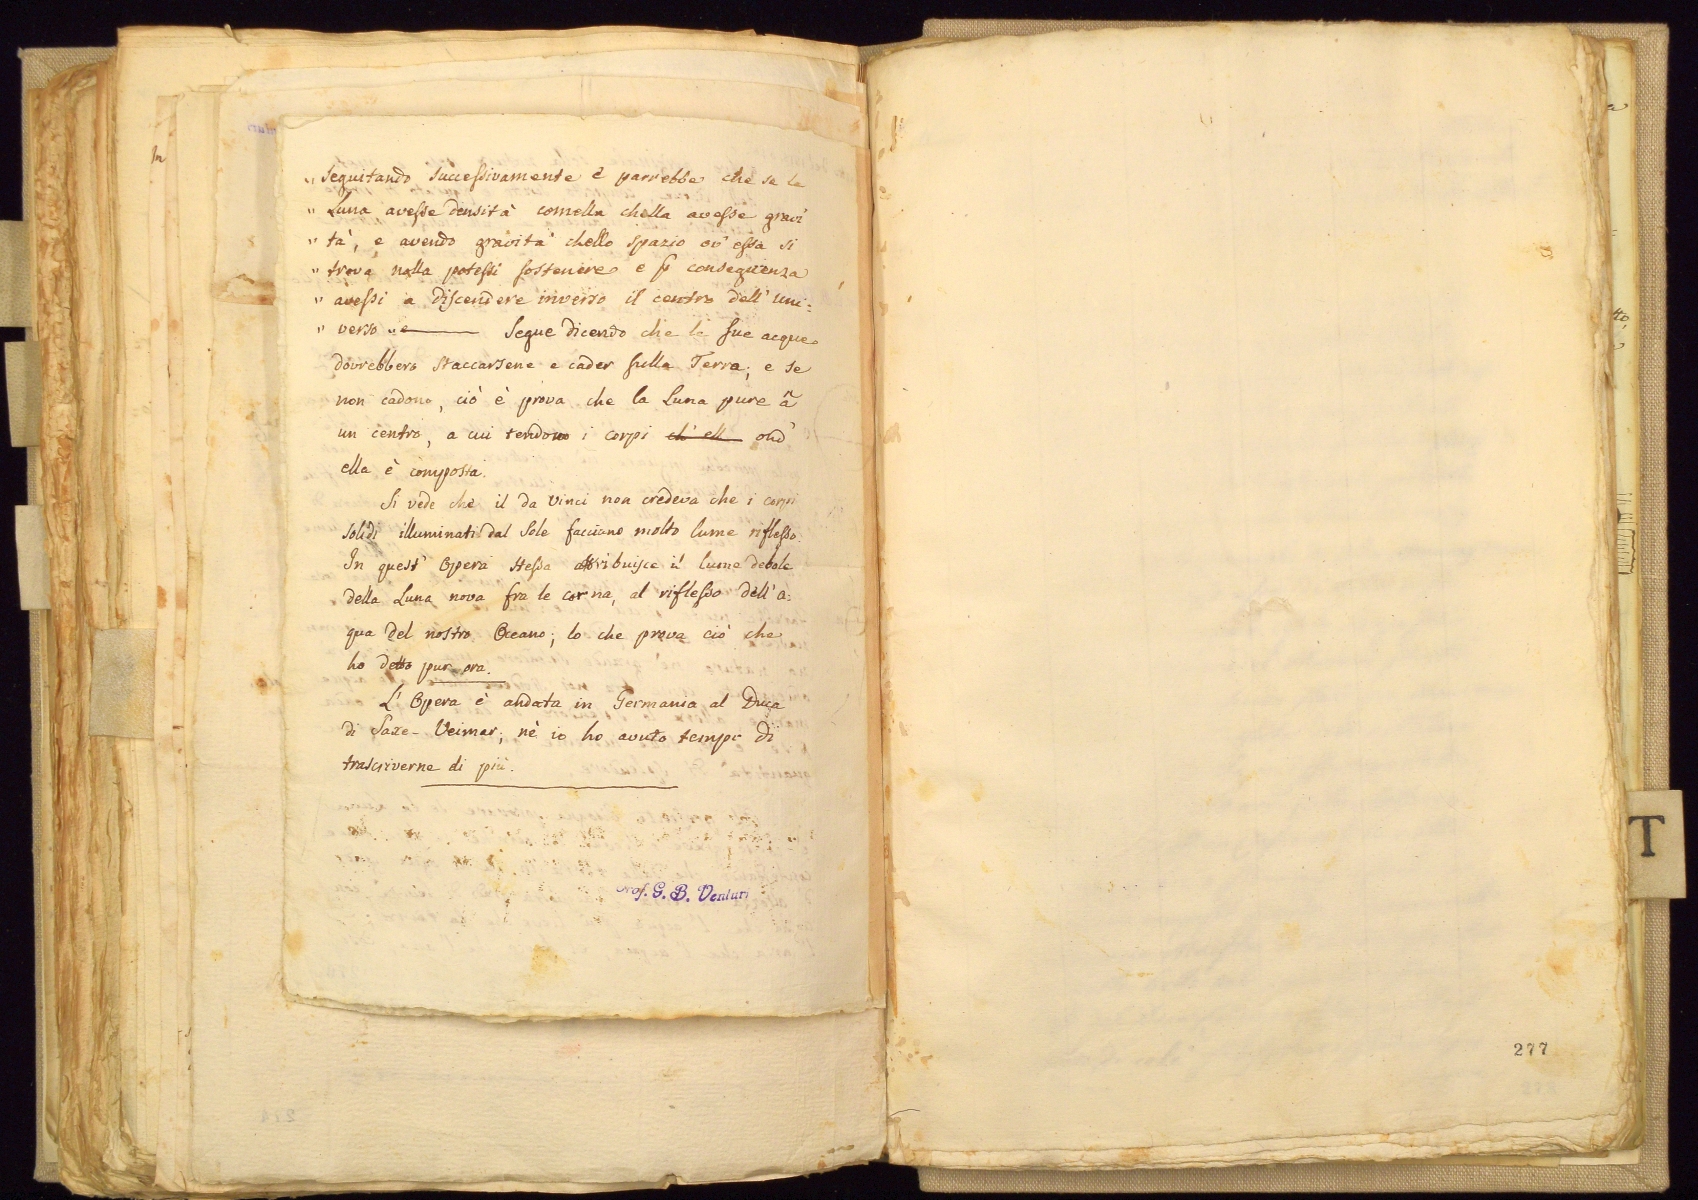 " seguitando successivamente è parrebbe che se la
" Luna avesse densità comella chella avesse gravi
" tà, e avendo gravità chello spazio ov' essa si
" trova nolla potessi sostenere e p conseguenza
" avessi a discendere inverso il centro dell' uni=
" verso " Segue dicendo che le sue acque
dovrebbero staccarsene e cader sulla Terra; e se
non cadono, ciò è prova che la Luna pure à
un centro, a cui tendono i corpi ch' ell ond'
ella è composta.
Si vede che il da Vinci non credeva che i corpi
solidi illuminati dal Sole facciano molto lume riflesso.
In quest' Opera stessa attribuisce il lume debole
della Luna nova fra le corna, al riflesso dell' a=
qua del nostro Oceano; lo che prova ciò che
ho detto pur ora.
L' Opera è andata in Germania al Duca
di Saxe-Veimar; nè io ho avuto tempo di
trascriverne di più.
Prof. G. B. Venturi
In
277
T